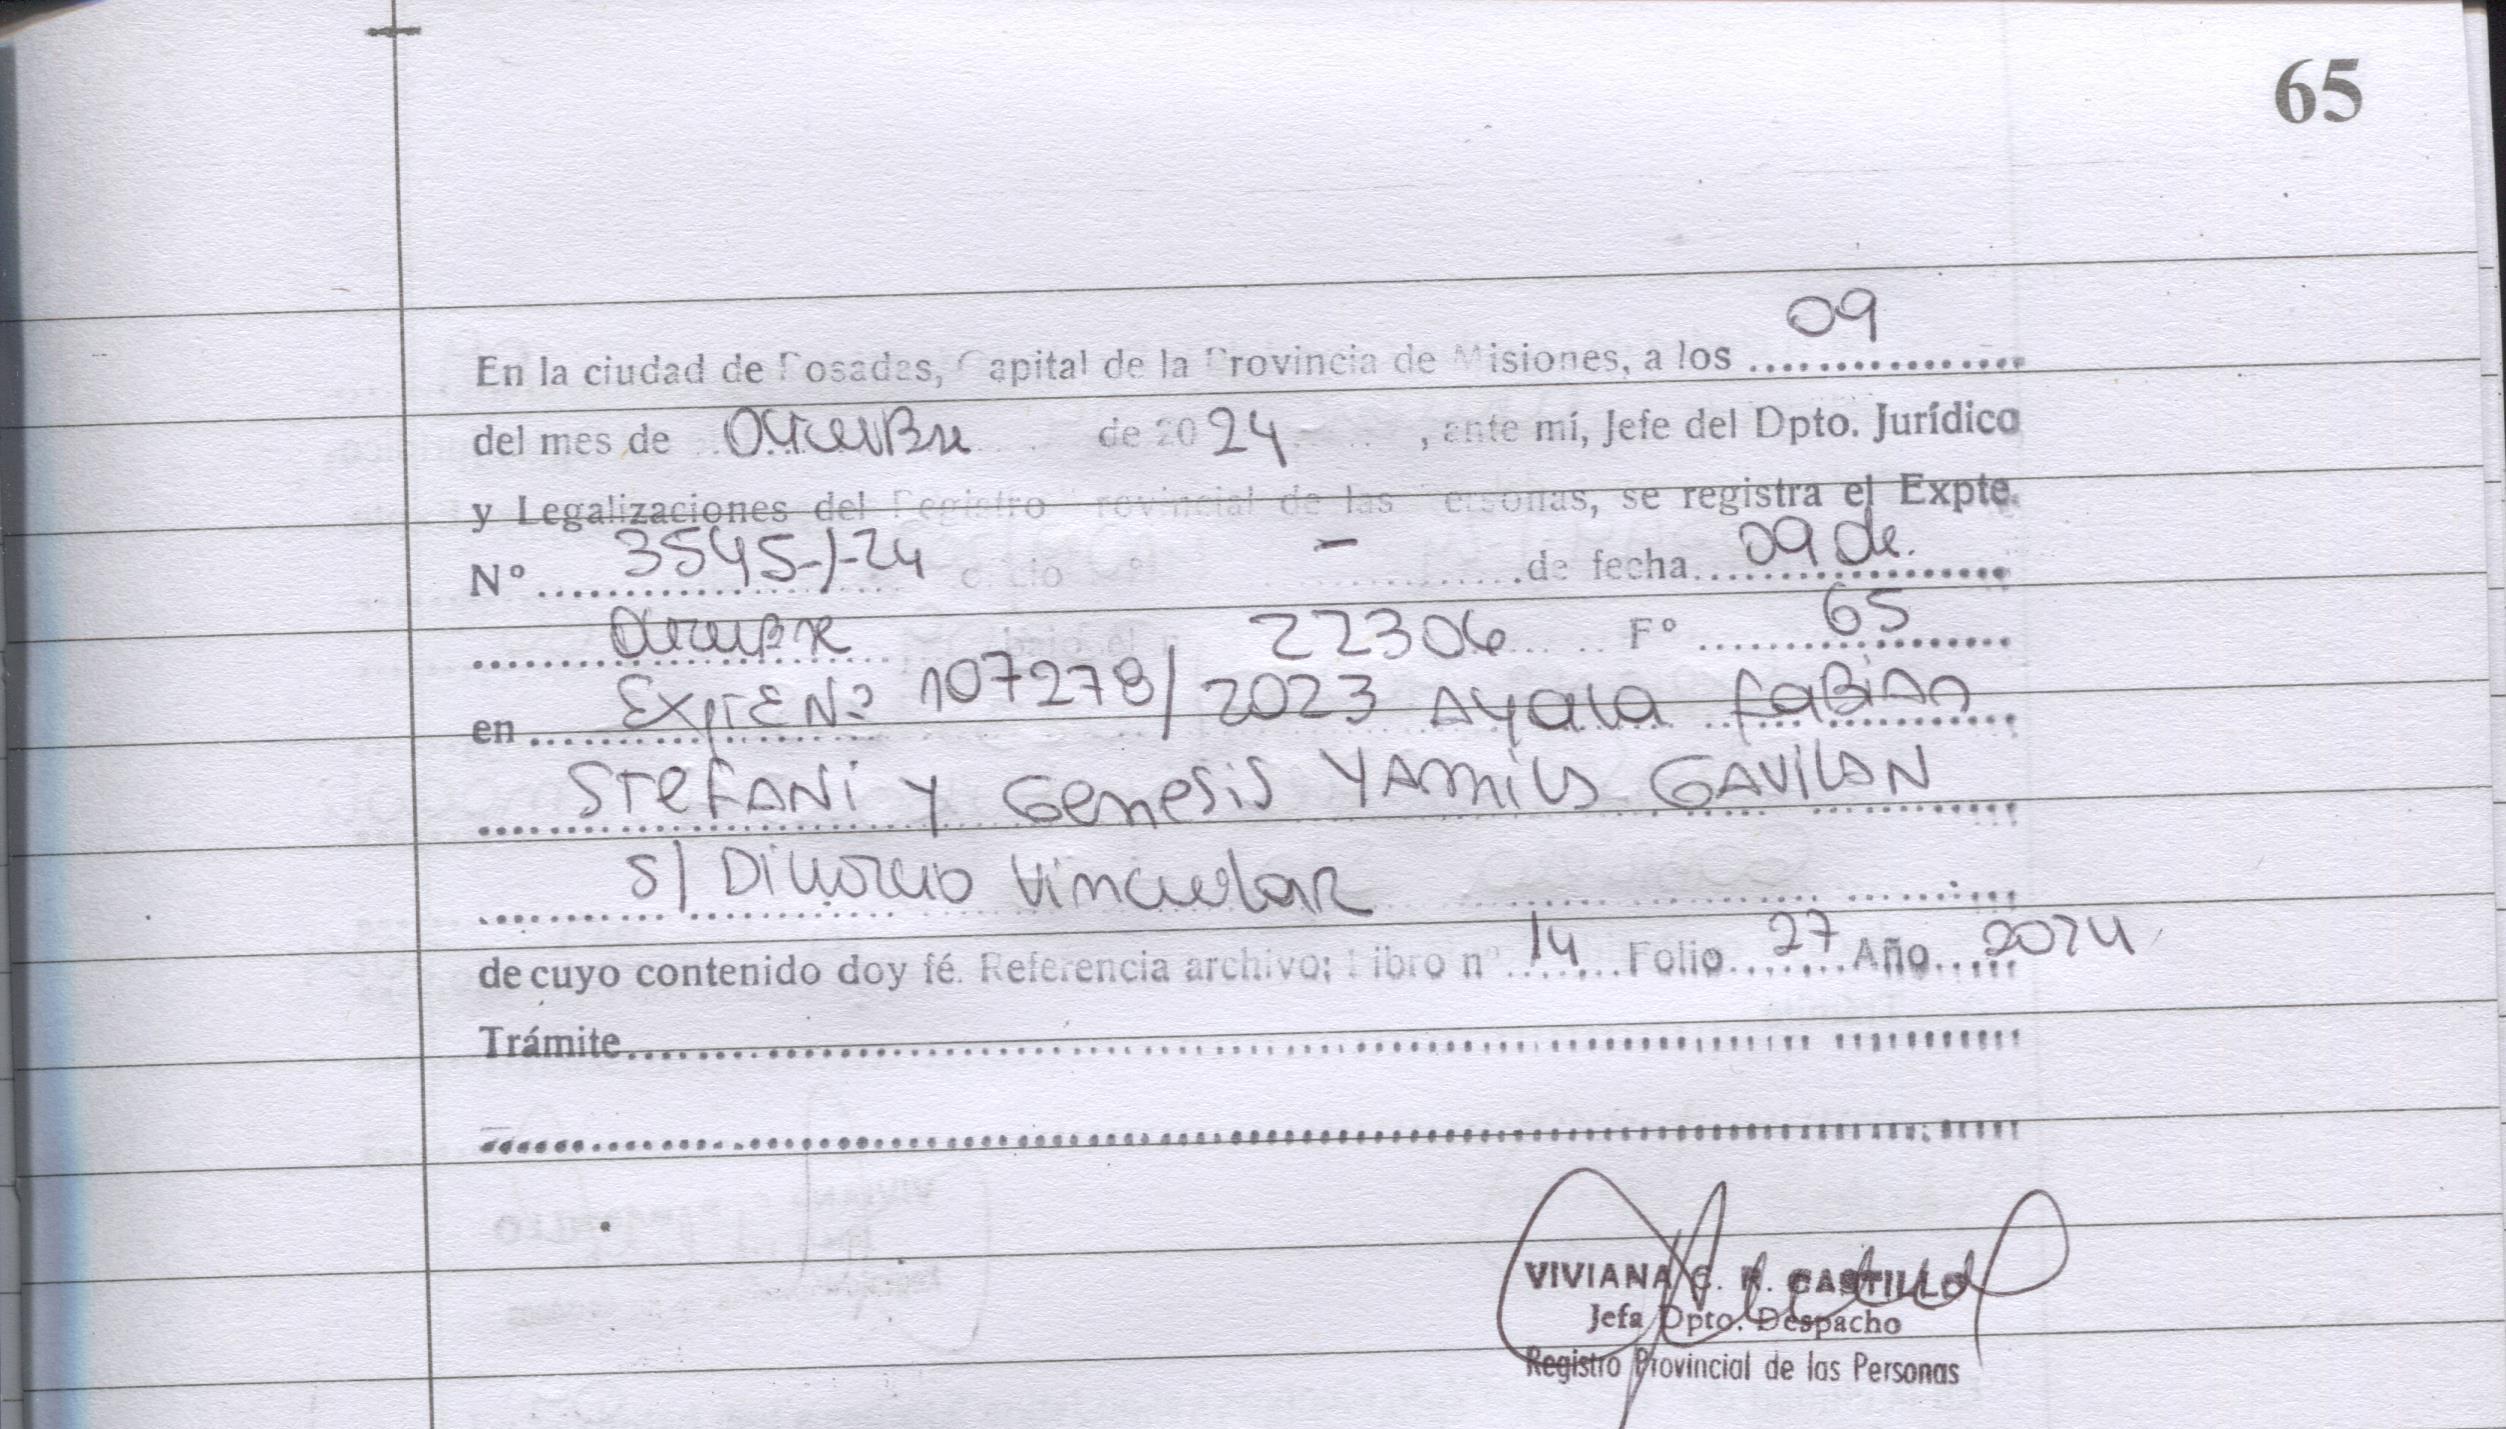 65
En la ciudad de Posadas, Capital de la Provincia de Misiones, a los 09
del mes de Octubre de 2024, ante mí, Jefe del Dpto. Jurídico
y Legalizaciones del Registro Provincial de las Personas, se registra el Expte.
Nº 3545-/-24 oficio nº - de fecha 09 de
Octubre 22306 Fº 65
en Expte Nº 107278/2023 Ayala Fabian
Stefani y Genesis Yamila GAVILAN
s/ Divorcio Vincular
de cuyo contenido doy fé. Referencia archivo: Libro nº 14 Folio 27 Año 2024
Trámite
VIVIANA C. R. CASTILLO
Jefa Dpto. Despacho
Registro Provincial de las Personas